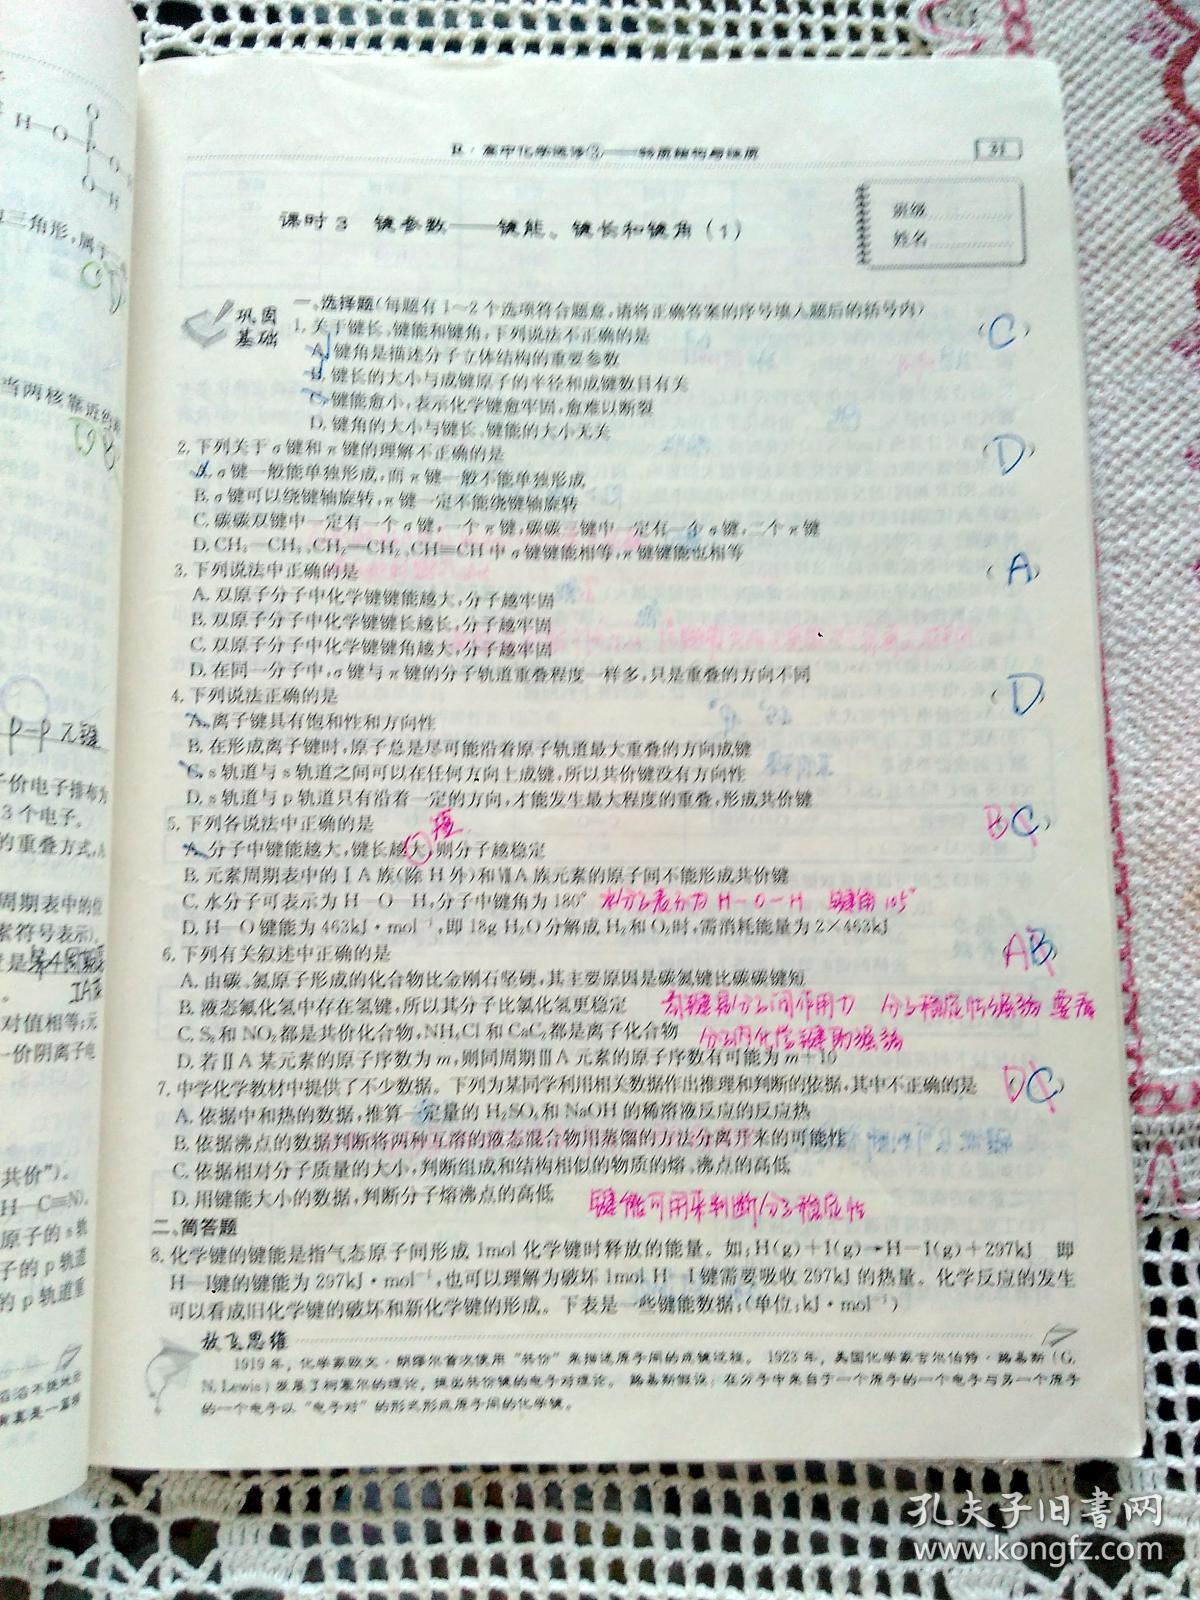 R·高中化学选修③——物质结构与性质
31
课时3 键参数——键能、键长和键角(1)
班级
姓名
巩固基础
一、选择题(每题有1~2个选项符合题意,请将正确答案的序号填入题后的括号内)
1.关于键长、键能和键角,下列说法不正确的是 (C)
A.键角是描述分子立体结构的重要参数
B.键长的大小与成键原子的半径和成键数目有关
C.键能愈小,表示化学键愈牢固,愈难以断裂
D.键角的大小与键长、键能的大小无关
2.下列关于σ键和π键的理解不正确的是 (D)
A.σ键一般能单独形成,而π键一般不能单独形成
B.σ键可以绕键轴旋转,π键一定不能绕键轴旋转
C.碳碳双键中一定有一个σ键,一个π键,碳碳三键中一定有一个σ键,二个π键
D.CH₃—CH₃、CH₂=CH₂、CH≡CH中σ键键能相等,π键键能也相等
3.下列说法中正确的是 (A)
A.双原子分子中化学键键能越大,分子越牢固
B.双原子分子中化学键键长越长,分子越牢固
C.双原子分子中化学键键角越大,分子越牢固
D.在同一分子中,σ键与π键的分子轨道重叠程度一样多,只是重叠的方向不同
4.下列说法正确的是 (D)
A.离子键具有饱和性和方向性
B.在形成离子键时,原子总是尽可能沿着原子轨道最大重叠的方向成键
C.s轨道与s轨道之间可以在任何方向上成键,所以共价键没有方向性
D.s轨道与p轨道只有沿着一定的方向,才能发生最大程度的重叠,形成共价键
5.下列各说法中正确的是 短 BC)
A.分子中键能越大,键长越大,则分子越稳定
B.元素周期表中的ⅠA族(除H外)和ⅦA族元素的原子间不能形成共价键
C.水分子可表示为H—O—H,分子中键角为180° 水分子表示为H-O-H 键角105°
D.H—O键能为463kJ·mol⁻¹,即18g H₂O分解成H₂和O₂时,需消耗能量为2×463kJ
6.下列有关叙述中正确的是 AB
A.由碳、氮原子形成的化合物比金刚石坚硬,其主要原因是碳氮键比碳碳键短
B.液态氟化氢中存在氢键,所以其分子比氯化氢更稳定 氢键是分子间作用力 分子稳定性强弱要看
C.S₈和NO₂都是共价化合物,NH₄Cl和CaC₂都是离子化合物 分子内化学键的强弱
D.若ⅡA某元素的原子序数为m,则同周期ⅢA元素的原子序数有可能为m+10
7.中学化学教材中提供了不少数据。下列为某同学利用相关数据作出推理和判断的依据,其中不正确的是 D(C)
A.依据中和热的数据,推算一定量的H₂SO₄和NaOH的稀溶液反应的反应热
B.依据沸点的数据判断将两种互溶的液态混合物用蒸馏的方法分离开来的可能性
C.依据相对分子质量的大小,判断组成和结构相似的物质的熔、沸点的高低
D.用键能大小的数据,判断分子熔沸点的高低 键能可用来判断分子稳定性
二、简答题
8.化学键的键能是指气态原子间形成1mol化学键时释放的能量。如:H(g)+I(g)→H—I(g)+297kJ 即
H—I键的键能为297kJ·mol⁻¹,也可以理解为破坏1mol H—I键需要吸收297kJ的热量。化学反应的发生
可以看成旧化学键的破坏和新化学键的形成。下表是一些键能数据:(单位:kJ·mol⁻¹)
放飞思维
1919年,化学家欧文·朗缪尔首次使用“共价”来描述原子间的成键过程。1923年,美国化学家吉尔伯特·路易斯(G.
N.Lewis)发展了柯塞尔的理论,提出共价键的电子对理论。路易斯假设:在分子中来自于一个原子的一个电子与另一个原子
的一个电子以“电子对”的形式形成原子间的化学键。
三角形,属于
当两核靠近的
p-p π键
价电子排布为
3个电子。
的重叠方式,
周期表中的位
素符号表示)。
是第4周期
ⅠA族
对值相等;元
价阴离子
共价”)。
H—C≡N)。
原子的s轨
子的p轨道
的p轨道重
孔夫子旧书网
www.kongfz.com